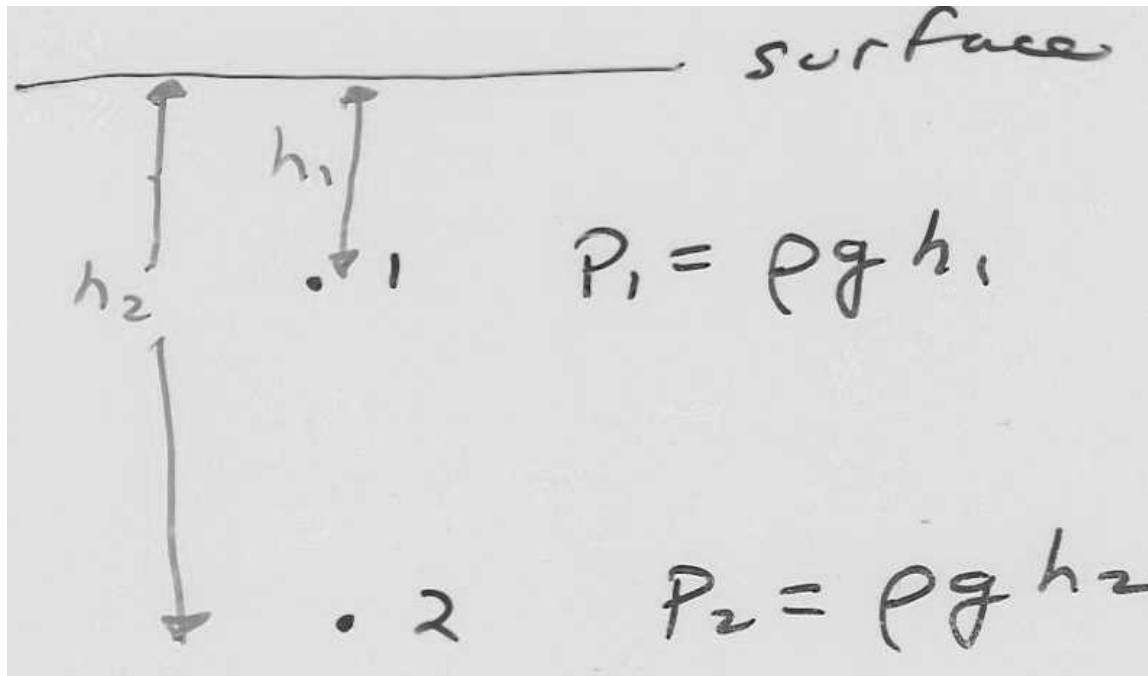 surface
h₁
h₂
. 1 P₁ = ρg h₁
. 2 P₂ = ρg h₂